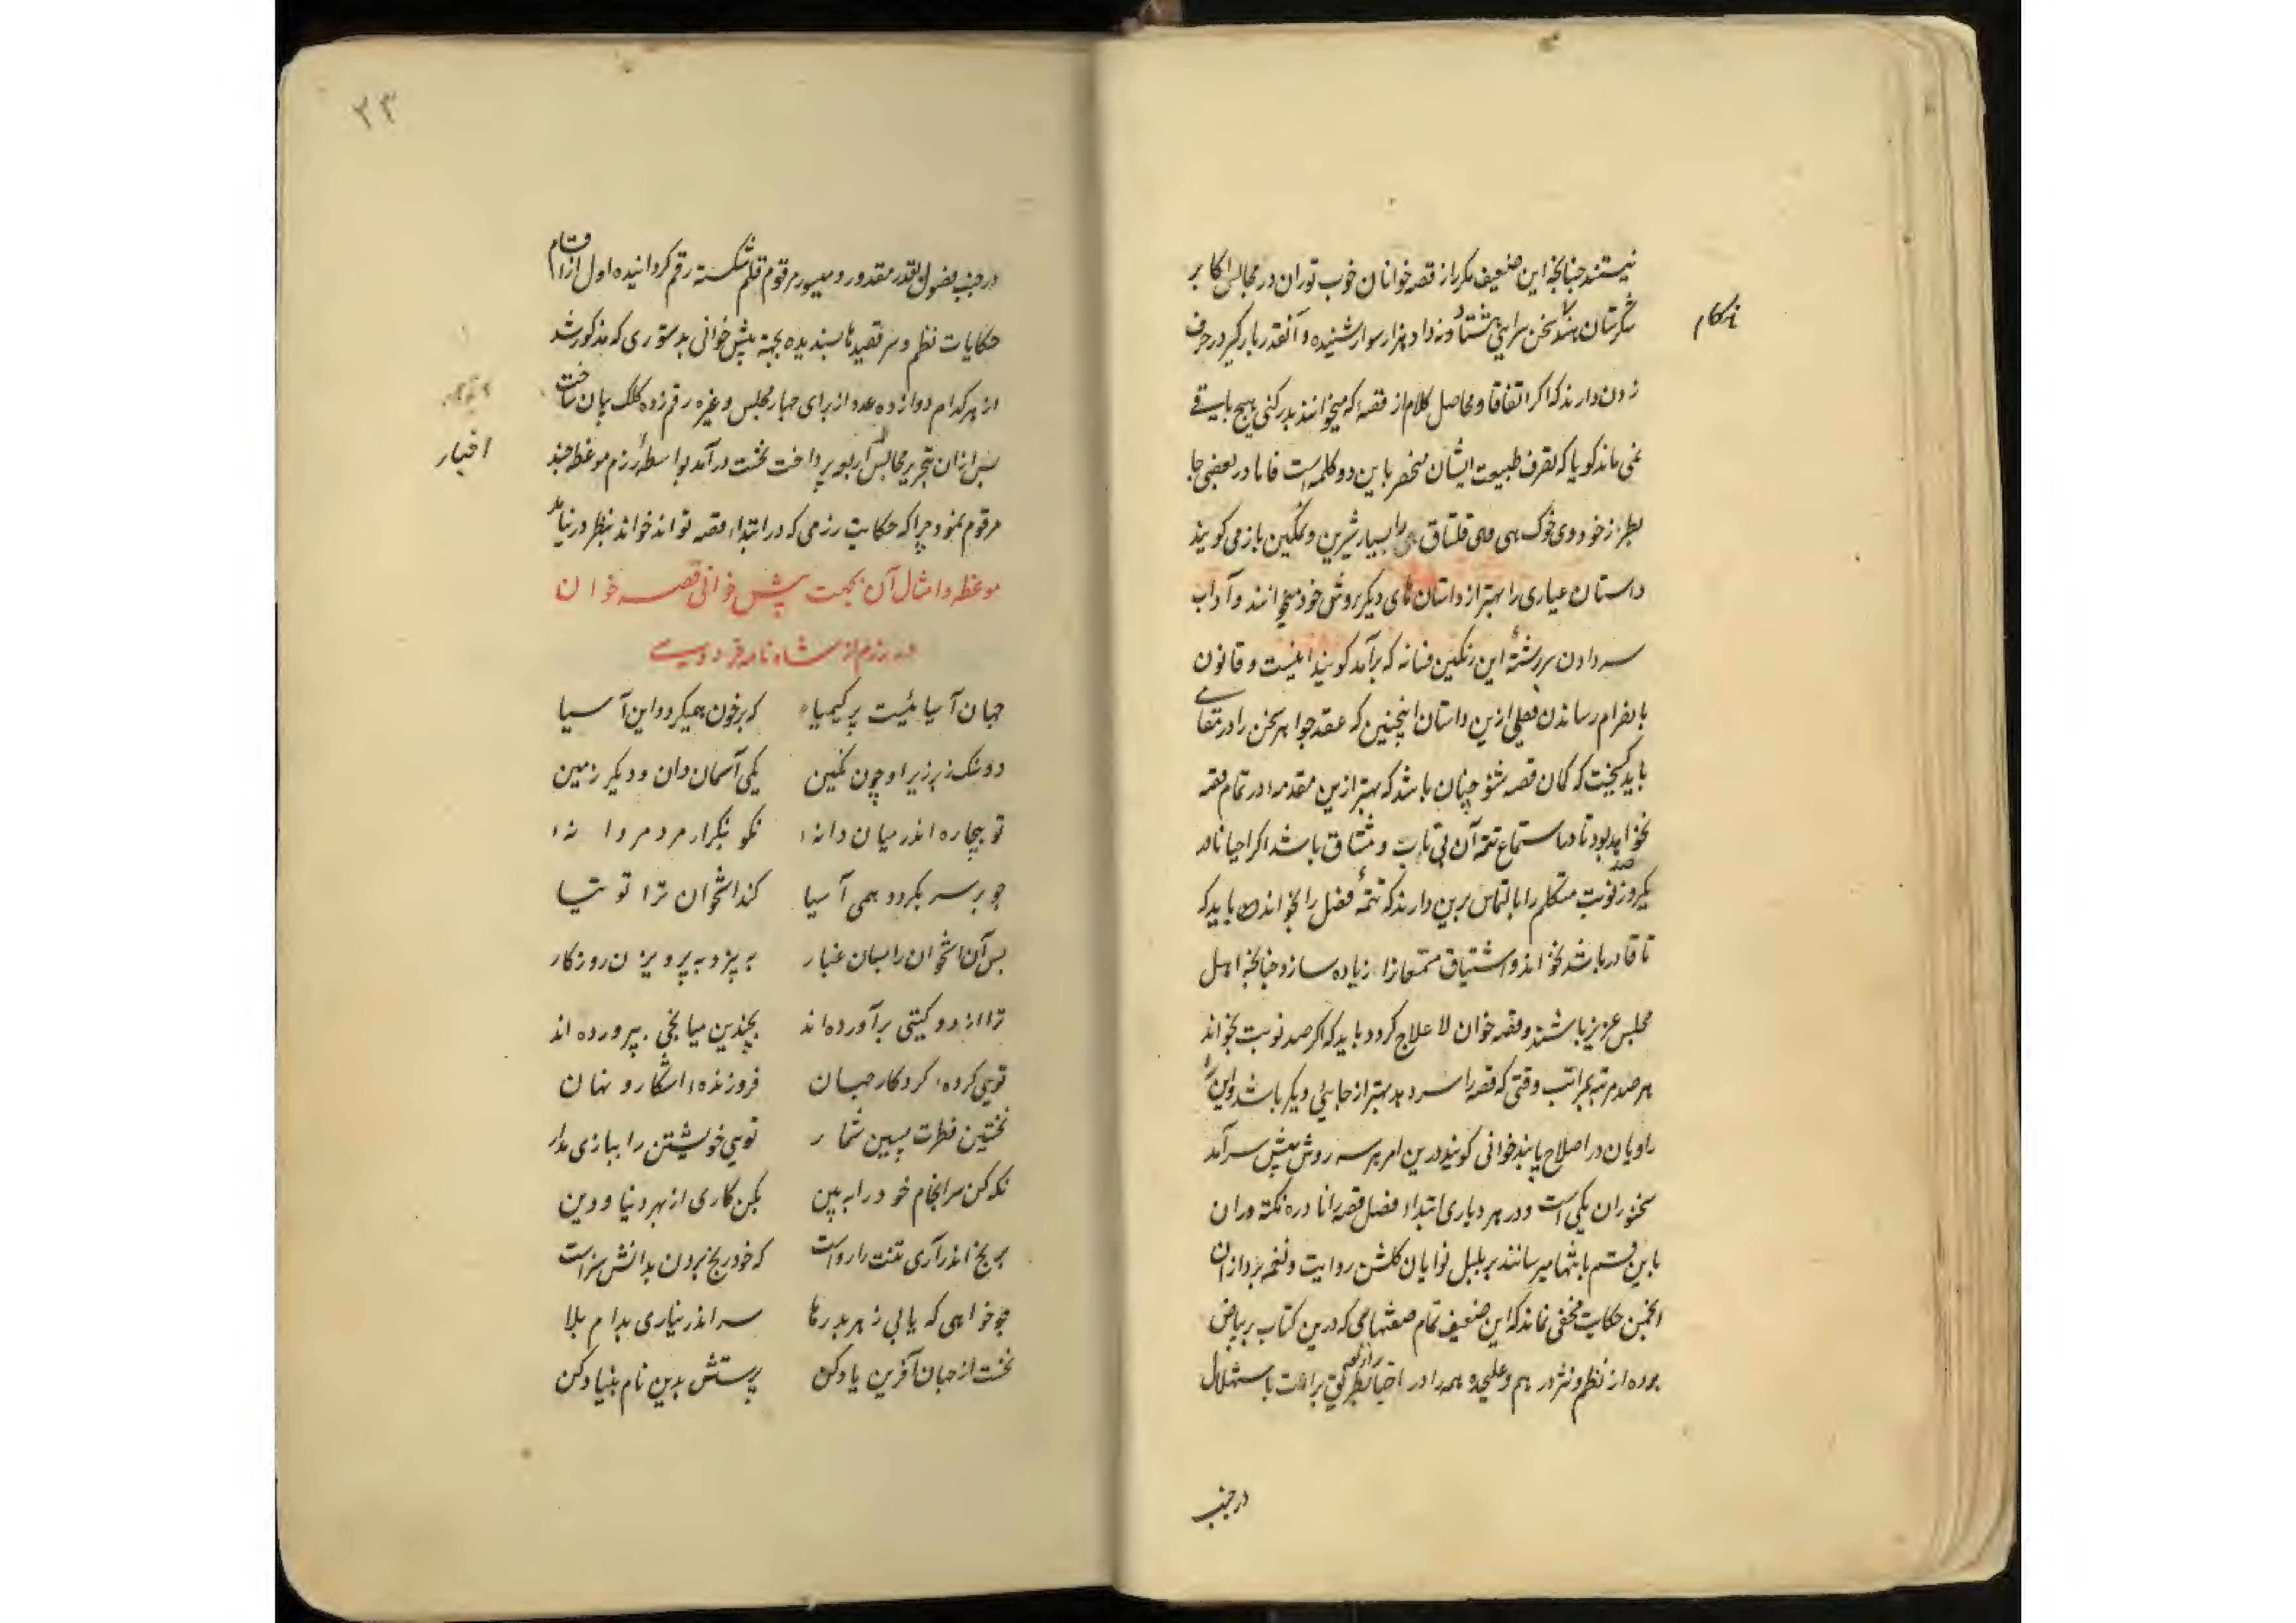 نیستند چنانچه این ضعیف مکرر از قصه خوانان خوب توران در مجالس اکابر
شکرستان هند سخن سرایی هشتاد و نه داو هزار سوار شنیده و آنقدر بارگیر در حرف
ناکام
زدن دارند که اگر اتفاقا و محاصل کلام از قصه که میخوانند بدر کنی هیچ باقی
نمی ماند گویا که تصرف طبیعت ایشان منحصر باین دو کلمه است فاما در بعضی جا
بطرز خود وی خوک هی های قلتاق را بسیار شیرین و نمکین باز می گویند
داستان عیاری را بهتر از داستان های دیگر بروش خود میخوانند و آداب
سر دادن بر رشتهٔ این رنگین فسانه که برآمد گویند اینست و قانون
بانصرام رساندن فصلی ازین داستان اینچنین که عقد جواهر سخن را در مقامی
باید گسیخت که گمان قصه شنو چنان باشد که بهتر ازین مقدمه در تمام قصه
نخواهد بود تا در استماع تتمه آن بی تاب و مشتاق باشد اگر احیانا در
یکروز صد نوبت متکلم را بالتماس برین دارند که تتمهٔ فصل را بخواند باید که
تا قادر باشد نخواند و اشتیاق مستمعانرا زیاده سازد چنانچه اهل
مجلس عزیز باشند و قصه خوان لا علاج گردد باید که اگر صد نوبت بخواند
هر صد مرتبه بمراتب وقتی که قصه را سر دهد بهتر از جایی دیگر باشد و این را
راویان در اصلاح پابند خوانی گویند درین امر هر سه روش پیش سرآمد
سخنوران یکی است و در هر دیاری ابتداء فصل قصه را نادره نکته وران
باین قسم بانتها میرسانند بر بلبل نوایان گلشن روایت و نغمه پردازان
انجمن حکایت مخفی نماند که این ضعیف تمام صفتهایی که درین کتاب بر بیاض
برده از نظم و نثر در هم و علیحده همه را در اختیار بطریق براعت باستهلال
در جنب
۲۳
در جنب فصول بقدر مقدور و میسور مرقوم قلم شکسته رقم گردانیده اول از اقسام
حکایات نظم و سر قصیدها پسندیده بجهة پیش خوانی بدستوری که مذکور شد
از هر کدام دوازده عدد از برای چهار مجلس و غیره رقم زده کلک بیان ساخت
اخبار
پس از آن بتحریر مجالس اربعه پرداخت نخست درآمد بواسطهٔ رزم موعظه چند
مرقوم نمود چرا که حکایت رزمی که در ابتداء قصه تواند خواند بنظر در نیامد
موعظه و امثال آن بجهت پیش خوانی قصه خوان
در رزم از شاه نامه فردوسی
جهان آسیائیست پر کیمیا که بر خون همیگردد این آسیا
دو سنگ زبر زیر او چون نگین یکی آسمان دان و دیگر زمین
تو بیچاره اندر میان دانه نکو بنگر ار مرد مردانه
چو بر سر بگردد همی آسیا کند استخوان ترا توتیا
پس آن استخوان را بسان غبار به بیزد به پرویزن روزگار
ترا از دو گیتی برآورده اند بچندین میانجی بپرورده اند
تویی کرده کردگار جهان فروزنده آشکار و نهان
نخستین فطرت پسین شمار تویی خویشتن را ببازی مدار
نگه کن سرانجام خود را به بین بکن کاری از بهر دنیا و دین
برنج اندر آری تنت را رواست که خود رنج بردن بدانش سزاست
چو خواهی که یابی ز هر بد رها سر اندر نیاری بدام بلا
نخست از جهان آفرین یاد کن پرستش بدین نام بنیاد کن